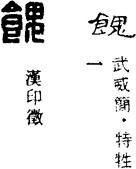 餽
武威簡·特牲
一
餽
漢印徵